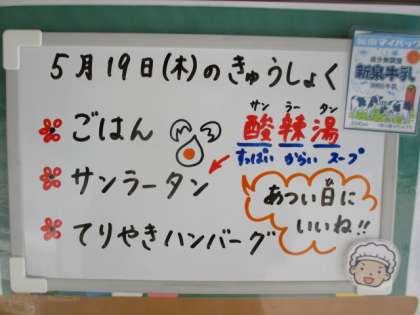 5月19日(木)のきゅうしょく
ごはん
サン ラー タン
酸辣湯
すっぱい からい スープ
サンラータン
あつい日に
いいね!!
てりやきハンバーグ
新泉牛乳